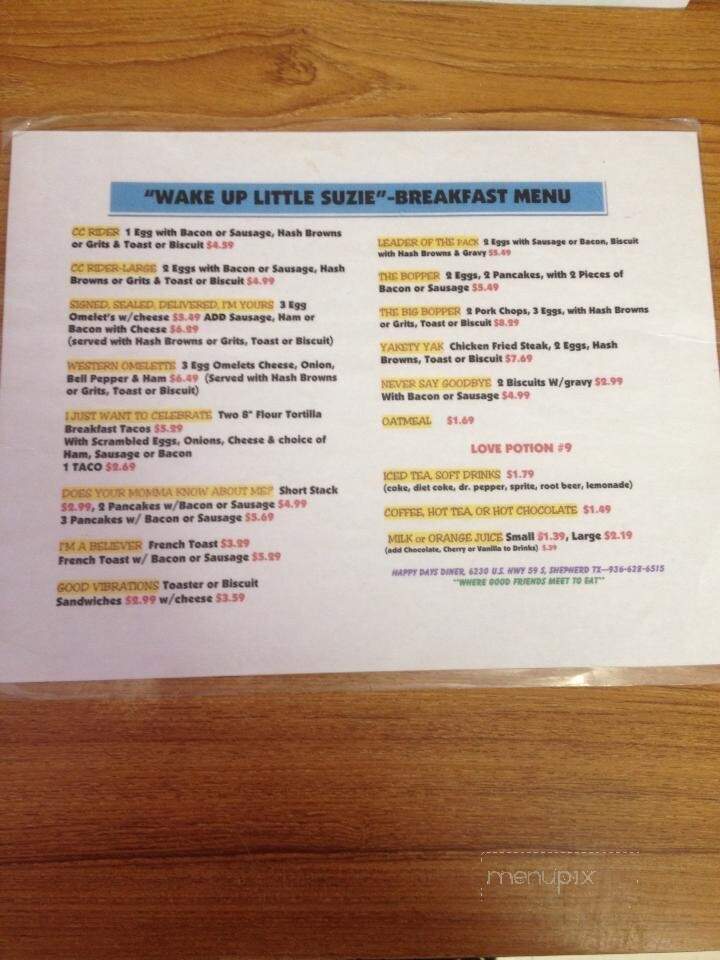 "WAKE UP LITTLE SUZIE"-BREAKFAST MENU
CC RIDER 1 Egg with Bacon or Sausage, Hash Browns
or Grits & Toast or Biscuit $4.59
CC RIDER-LARGE 2 Eggs with Bacon or Sausage, Hash
Browns or Grits & Toast or Biscuit $4.99
SIGNED, SEALED, DELIVERED, I'M YOURS 3 Egg
Omelet's w/cheese $5.49 ADD Sausage, Ham or
Bacon with Cheese $6.29
(served with Hash Browns or Grits, Toast or Biscuit)
WESTERN OMELETTE 3 Egg Omelets Cheese, Onion,
Bell Pepper & Ham $6.49 (Served with Hash Browns
or Grits, Toast or Biscuit)
I JUST WANT TO CELEBRATE Two 8" Flour Tortilla
Breakfast Tacos $5.29
With Scrambled Eggs, Onions, Cheese & choice of
Ham, Sausage or Bacon
1 TACO $2.69
DOES YOUR MOMMA KNOW ABOUT ME? Short Stack
$2.99, 2 Pancakes w/Bacon or Sausage $4.99
3 Pancakes w/ Bacon or Sausage $5.69
I'M A BELIEVER French Toast $3.29
French Toast w/ Bacon or Sausage $5.29
GOOD VIBRATIONS Toaster or Biscuit
Sandwiches $2.99 w/cheese $3.59
LEADER OF THE PACK 2 Eggs with Sausage or Bacon, Biscuit
with Hash Browns & Gravy $5.49
THE BOPPER 2 Eggs, 2 Pancakes, with 2 Pieces of
Bacon or Sausage $5.49
THE BIG BOPPER 2 Pork Chops, 3 Eggs, with Hash Browns
or Grits, Toast or Biscuit $8.29
YAKETY YAK Chicken Fried Steak, 2 Eggs, Hash
Browns, Toast or Biscuit $7.69
NEVER SAY GOODBYE 2 Biscuits W/gravy $2.99
With Bacon or Sausage $4.99
OATMEAL $1.69
LOVE POTION #9
ICED TEA, SOFT DRINKS $1.79
(coke, diet coke, dr. pepper, sprite, root beer, lemonade)
COFFEE, HOT TEA, OR HOT CHOCOLATE $1.49
MILK or ORANGE JUICE Small $1.39, Large $2.19
(add Chocolate, Cherry or Vanilla to Drinks) $.39
HAPPY DAYS DINER, 6230 U.S. HWY 59 S, SHEPHERD TX-936-628-6515
"WHERE GOOD FRIENDS MEET TO EAT"
menupix